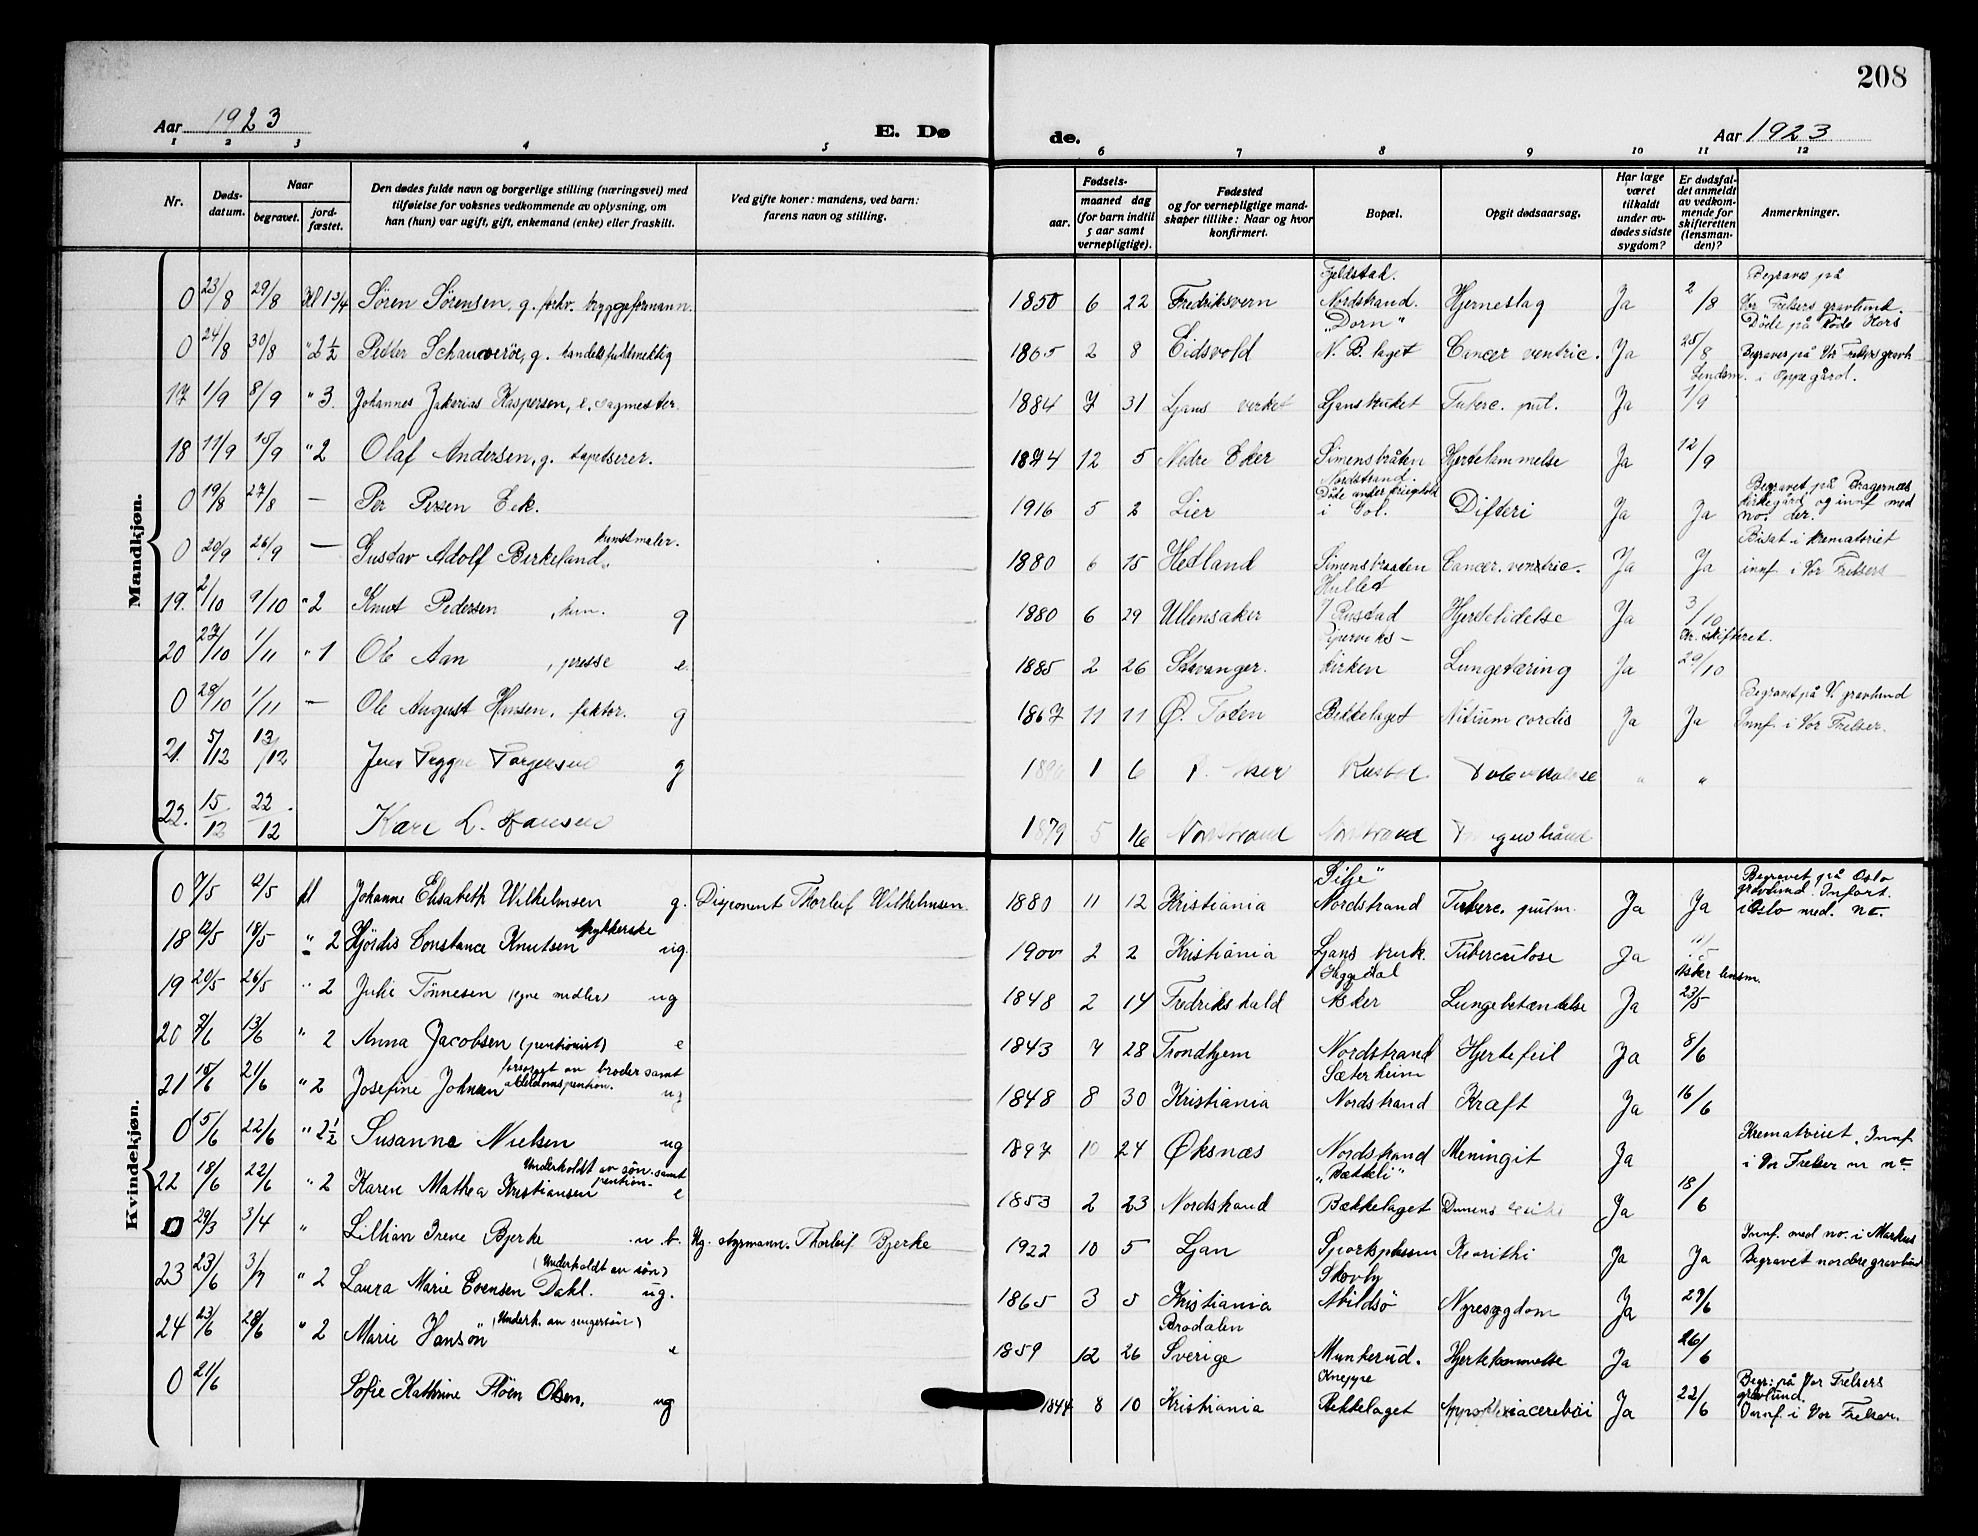 208
Aar 1923
E. Dø
de.
Aar 1923
1 2 3 4 5 6 7 8 9 10 11 12
Nr.
Døds-
datum.
Naar
begravet.
jord-
fæstet.
Den dødes fulde navn og borgerlige stilling (næringsvei) med
tilføielse for voksnes vedkommende av oplysning, om
han (hun) var ugift, gift, enkemand (enke) eller fraskilt.
Ved gifte koner: mandens, ved barn:
farens navn og stilling.
Fødsels-
aar.
maaned dag
(for barn indtil
5 aar samt
vernepligtige).
Fødested
og for vernepligtige mand-
skaper tillike: Naar og hvor
konfirmert.
Bopæl.
Opgit dødsaarsag.
Har læge
været
tilkaldt
under av-
dødes sidste
sygdom?
Er dødsfal-
det anmeldt
av vedkom-
mende for
skifteretten
(lensman-
den)?
Anmerkninger.
Mandkjøn.
0 23/8 29/8 Kl 1 3/4 Søren Sørensen, g. forhv. byggeformann. 1850 6 22 Fredriksvern Fjeldstad. Nordstrand. Hjerneslag Ja 2/8 Begraves på Vor Frelsers gravlund.
0 24/8 30/8 " 2 1/2 Petter g. handelsfuldmektig 1865 2 8 Eidsvold "Dorn" N. B. laget Cancer ventric. Ja 25/8 Døde på Røde Kors Begraves på Vor Frelsers gravl.
17 1/9 8/9 " 3. Johannes Zakarias Kaspersen, e. sagmester. 1884 7 31 Ljans verket Ljansbruket Tuberc. pul. Ja Lendsm. i Oppegård. 1/9
18 11/9 15/9 " 2 Olaf Andersen, g. tapetserer. 1874 12 5 Nedre Eker Simensbråten Nordstrand. Hjertelammelse Ja 12/9
0 19/8 27/8 — Per Persen Eek. 1916 5 2 Lier Døde under i Gol. Difteri Ja Ja Begravet på Bragernæs kirkegård og innf med no. der.
0 20/9 26/9 — Gustav Adolf Birkeland, kunstmaler. 1880 6 15 Hetland Simensbraaten Cancer. ventric. Ja Ja Bisat i krematoriet innf. i Vor Frelsers
19. 2/10 9/10 " 2 Knut Pedersen g 1880 6 29 Ullensaker Hjertelidelse Ja 3/10
20 27/10 1/11 " 1 Ole Aan , presse e. 1885 2 26 Stavanger. Piperviks-kirken Lungetæring Ja Kr. skifteret. 29/10
0 28/10 1/11 — Ole August Hansen. faktor. g 1867 11 11 Ø. Toten Bekkelaget Vitium cordis Ja Ja Begravet på V. gravlund Innf. i Vor Frelser.
21. 5/12 13/12 Jens Torgersen g 1 6 " "
22. 15/12 22/12 Karl L. Hansen 1879 5 16 Nordstrand Nordstrand
Kvindekjøn.
0 7/5 12/5 kl Johanne Elisabeth Wilhelmsen g. Disponent Thorleif Wilhelmsen. 1880 11 12 Kristiania "Silje" Nordstrand Tuberc. pulm. Ja Ja Begravet på Oslo gravlund. Infört i Oslo med. no.
18 12/5 18/5 " 2 Hjördis Constance Knutsen ug. 1900 2 2 Kristiania Ljans bruk. Tuberculose Ja
19 20/5 26/5 " 2 Julie Tönnesen (egne midler) ug 1848 2 14 Fredrikshald Aker Lungebetændelse Ja Aker lensm. 23/5
20 8/6 13/6 " 2 Anna Jacobsen (pensionist) e 1843 7 28 Trondhjem Nordstrand Hjertefeil Ja 8/6
21 15/6 21/6 " 2 Josefine Johnsen forsørget av broder samt alderdomspension. ug 1848 8 30 Kristiania Sæterheim Nordstrand Kræft Ja 16/6
0 15/6 22/6 " 2 1/2 Susanna Nielsen ug 1897 10 24 Øksnæs Nordstrand Meningit Ja Krematoriet. Innf i Vor Frelser m no
22 18/6 22/6 " 2 Karen Mathea Kristiansen Underholdt av søn samt pension. e 1853 2 23 Nordstrand "Bækkeli" Bækkelaget Ja 18/6
0 29/3 3/4 " Lillian Irene Bjerke u. b. Ug. styrmann. Thorleif Bjerke 1922 10 5 Ljan Ja Ja Innf. med no. i Markus Begravet nordre gravlund
23 23/6 3/7 " 2 Laura Marie Evensen Dahl. (Underholdt av søn) ug. 1865 3 5 Kristiania Skovby Abildsö Nyresygdom Ja 27/6
24 23/6 28/6 " 2 Marie Hansön (Underh. av svigersön) e 1859 12 26 Brodalen Sverige Munkerud. Hjertelammelse Ja 26/6
0 21/6 Sofie Kathrine Flöen Olsen. ug 1844 8 10 Kristiania Kneppe Bekkelaget Appoplexia cerebri Ja 22/6 Begr: på Vor Frelsers gravlund. Innf. i Vor Frelser.